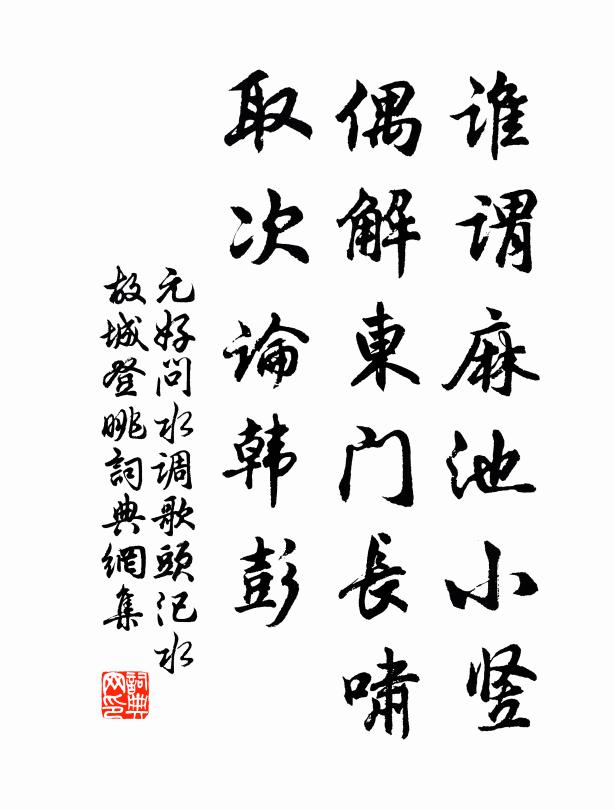 谁谓麻池小竖
偶解東门長啸
取次论韩彭
元好问水调歌頭汜水
故城登眺詞典網集
詞典
网印